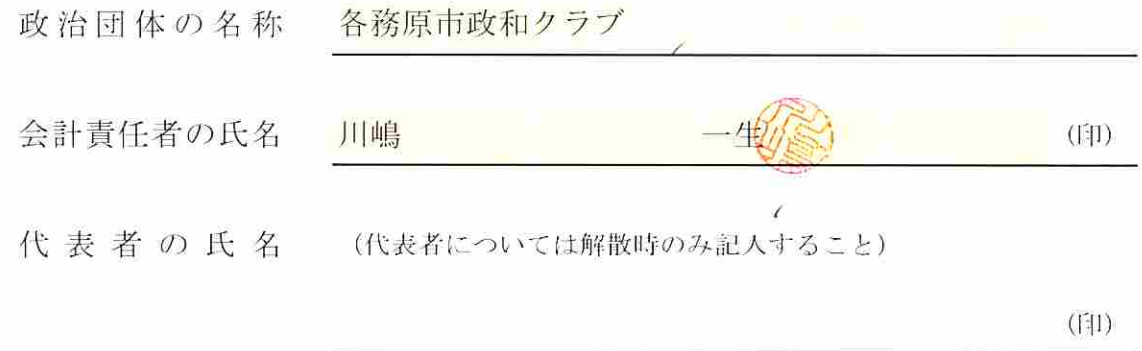 政治団体の名称 各務原市政和クラブ
会計責任者の氏名 川嶋 一生 (印)
代表者の氏名 (代表者については解散時のみ記入すること)
(印)